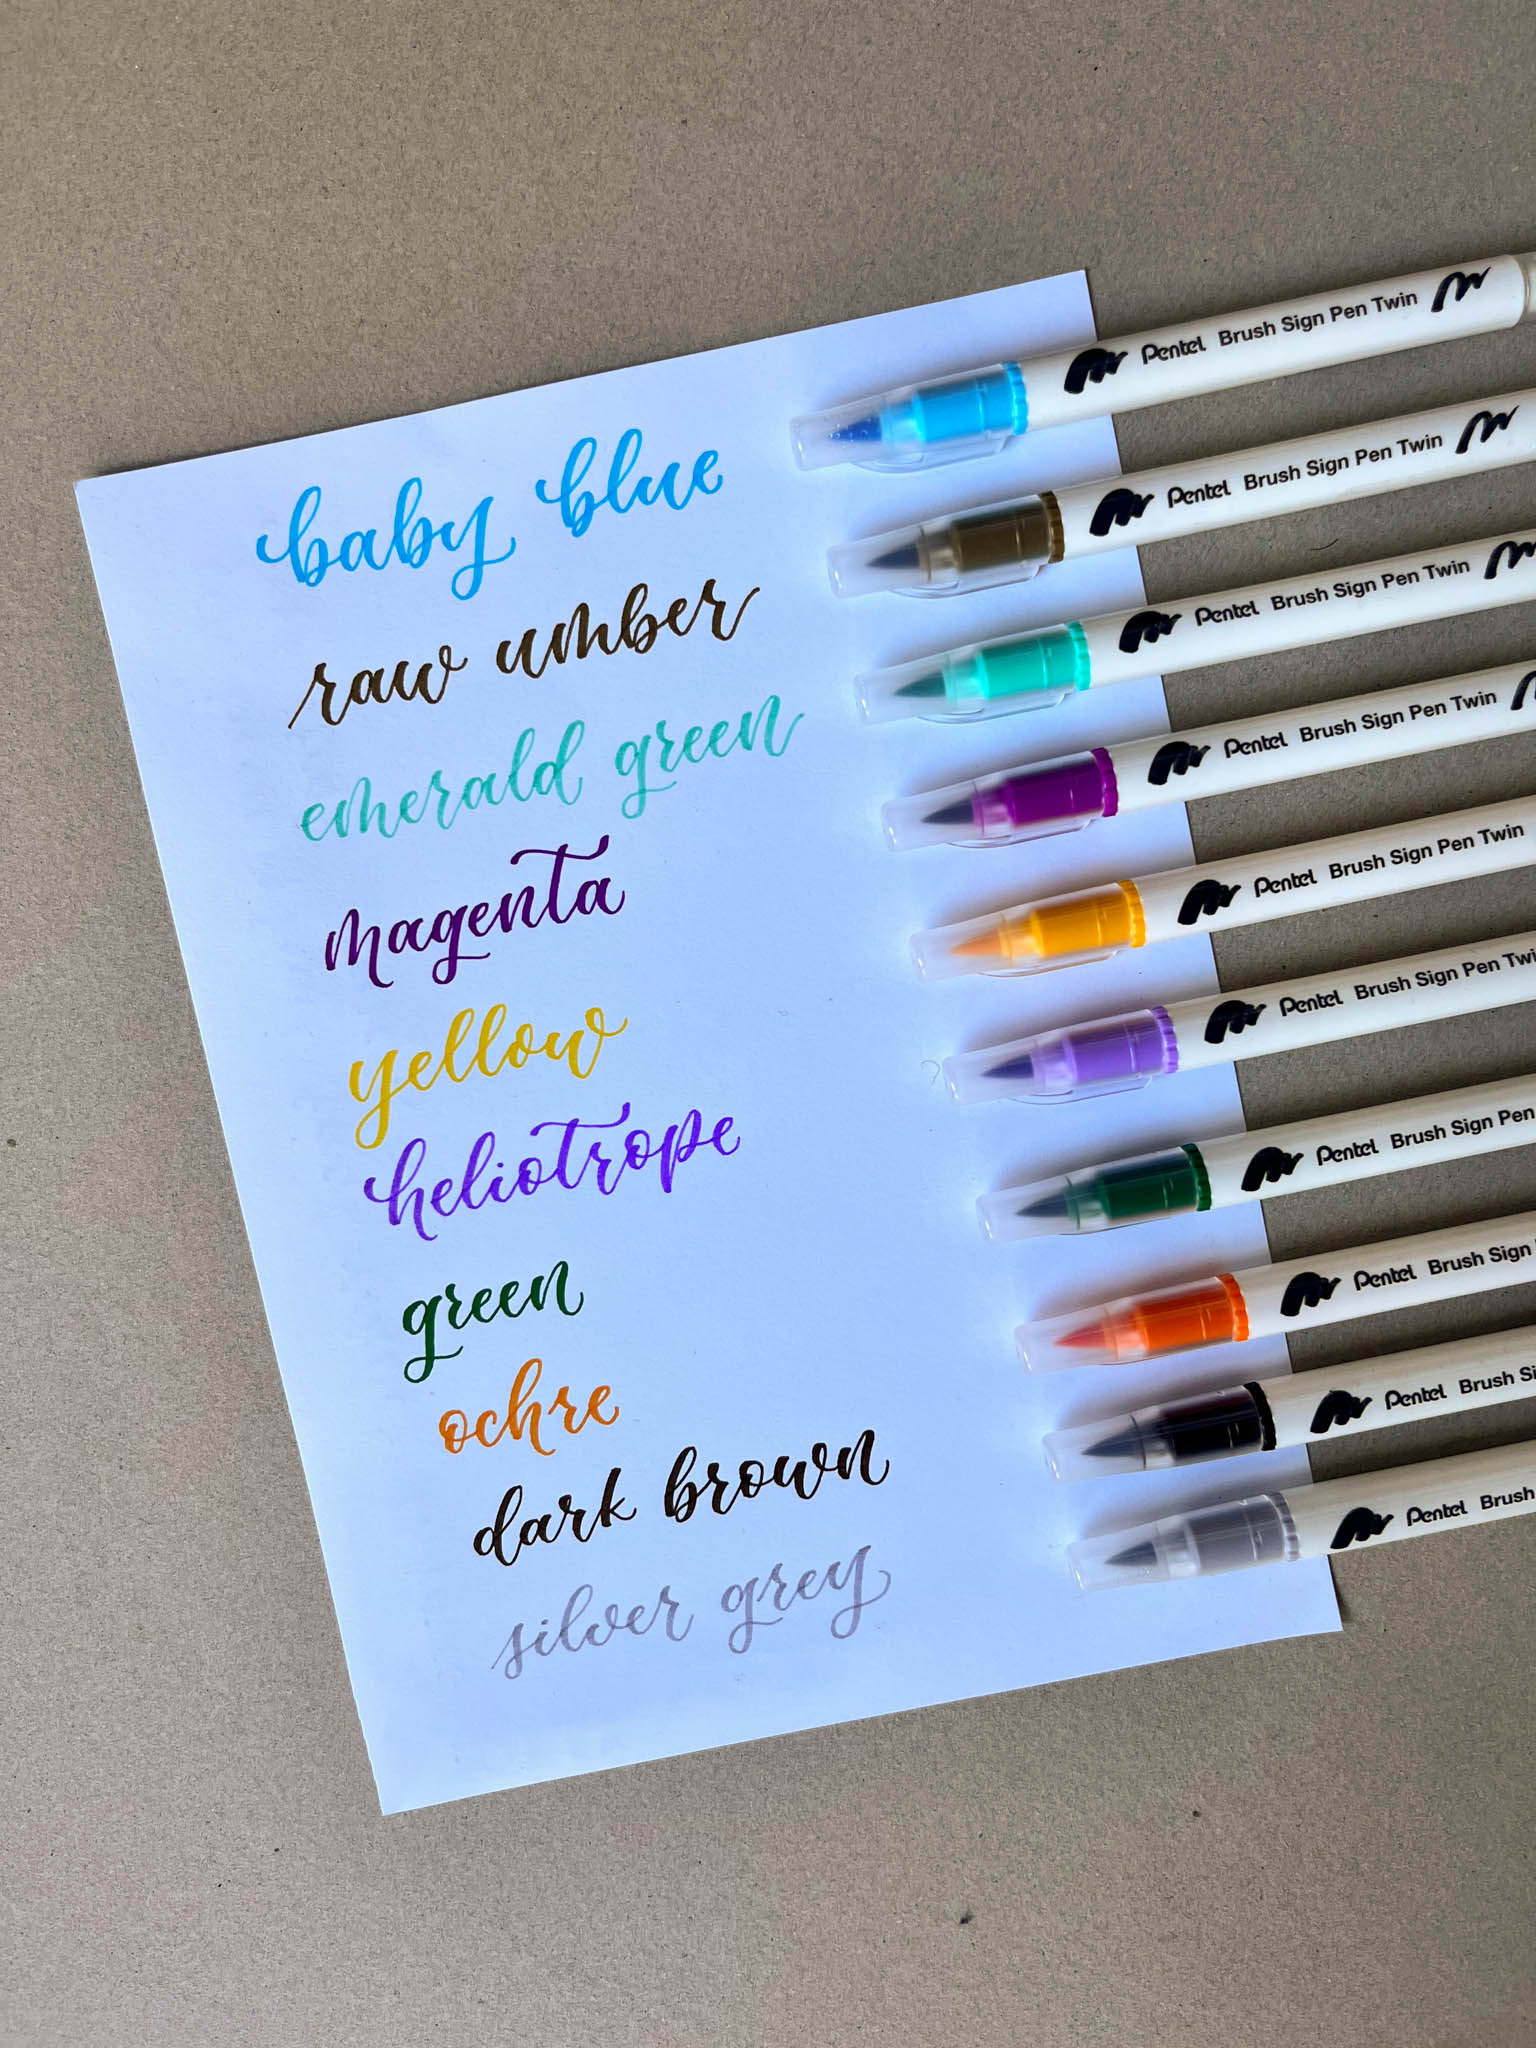 baby blue
raw umber
emerald green
magenta
yellow
heliotrope
green
ochre
dark brown
silver grey
Pentel Brush Sign Pen Twin
Pentel Brush Sign Pen Twin
Pentel Brush Sign Pen Twin
Pentel Brush Sign Pen Twin
Pentel Brush Sign Pen Twin
Pentel Brush Sign Pen Twi
Pentel Brush Sign Pen
Pentel Brush Sign
Pentel Brush Si
Pentel Brush